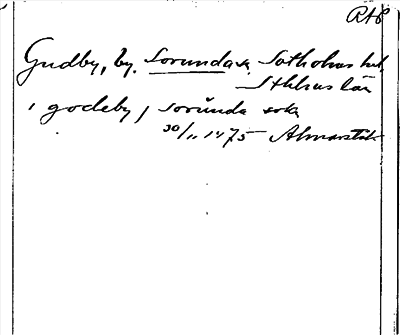 RAp
Gudby, by. Sorunda sn. Sotholms hd,
Sthlms län
i godeby j sorunda sokn
30/11 1475 Almarstäk